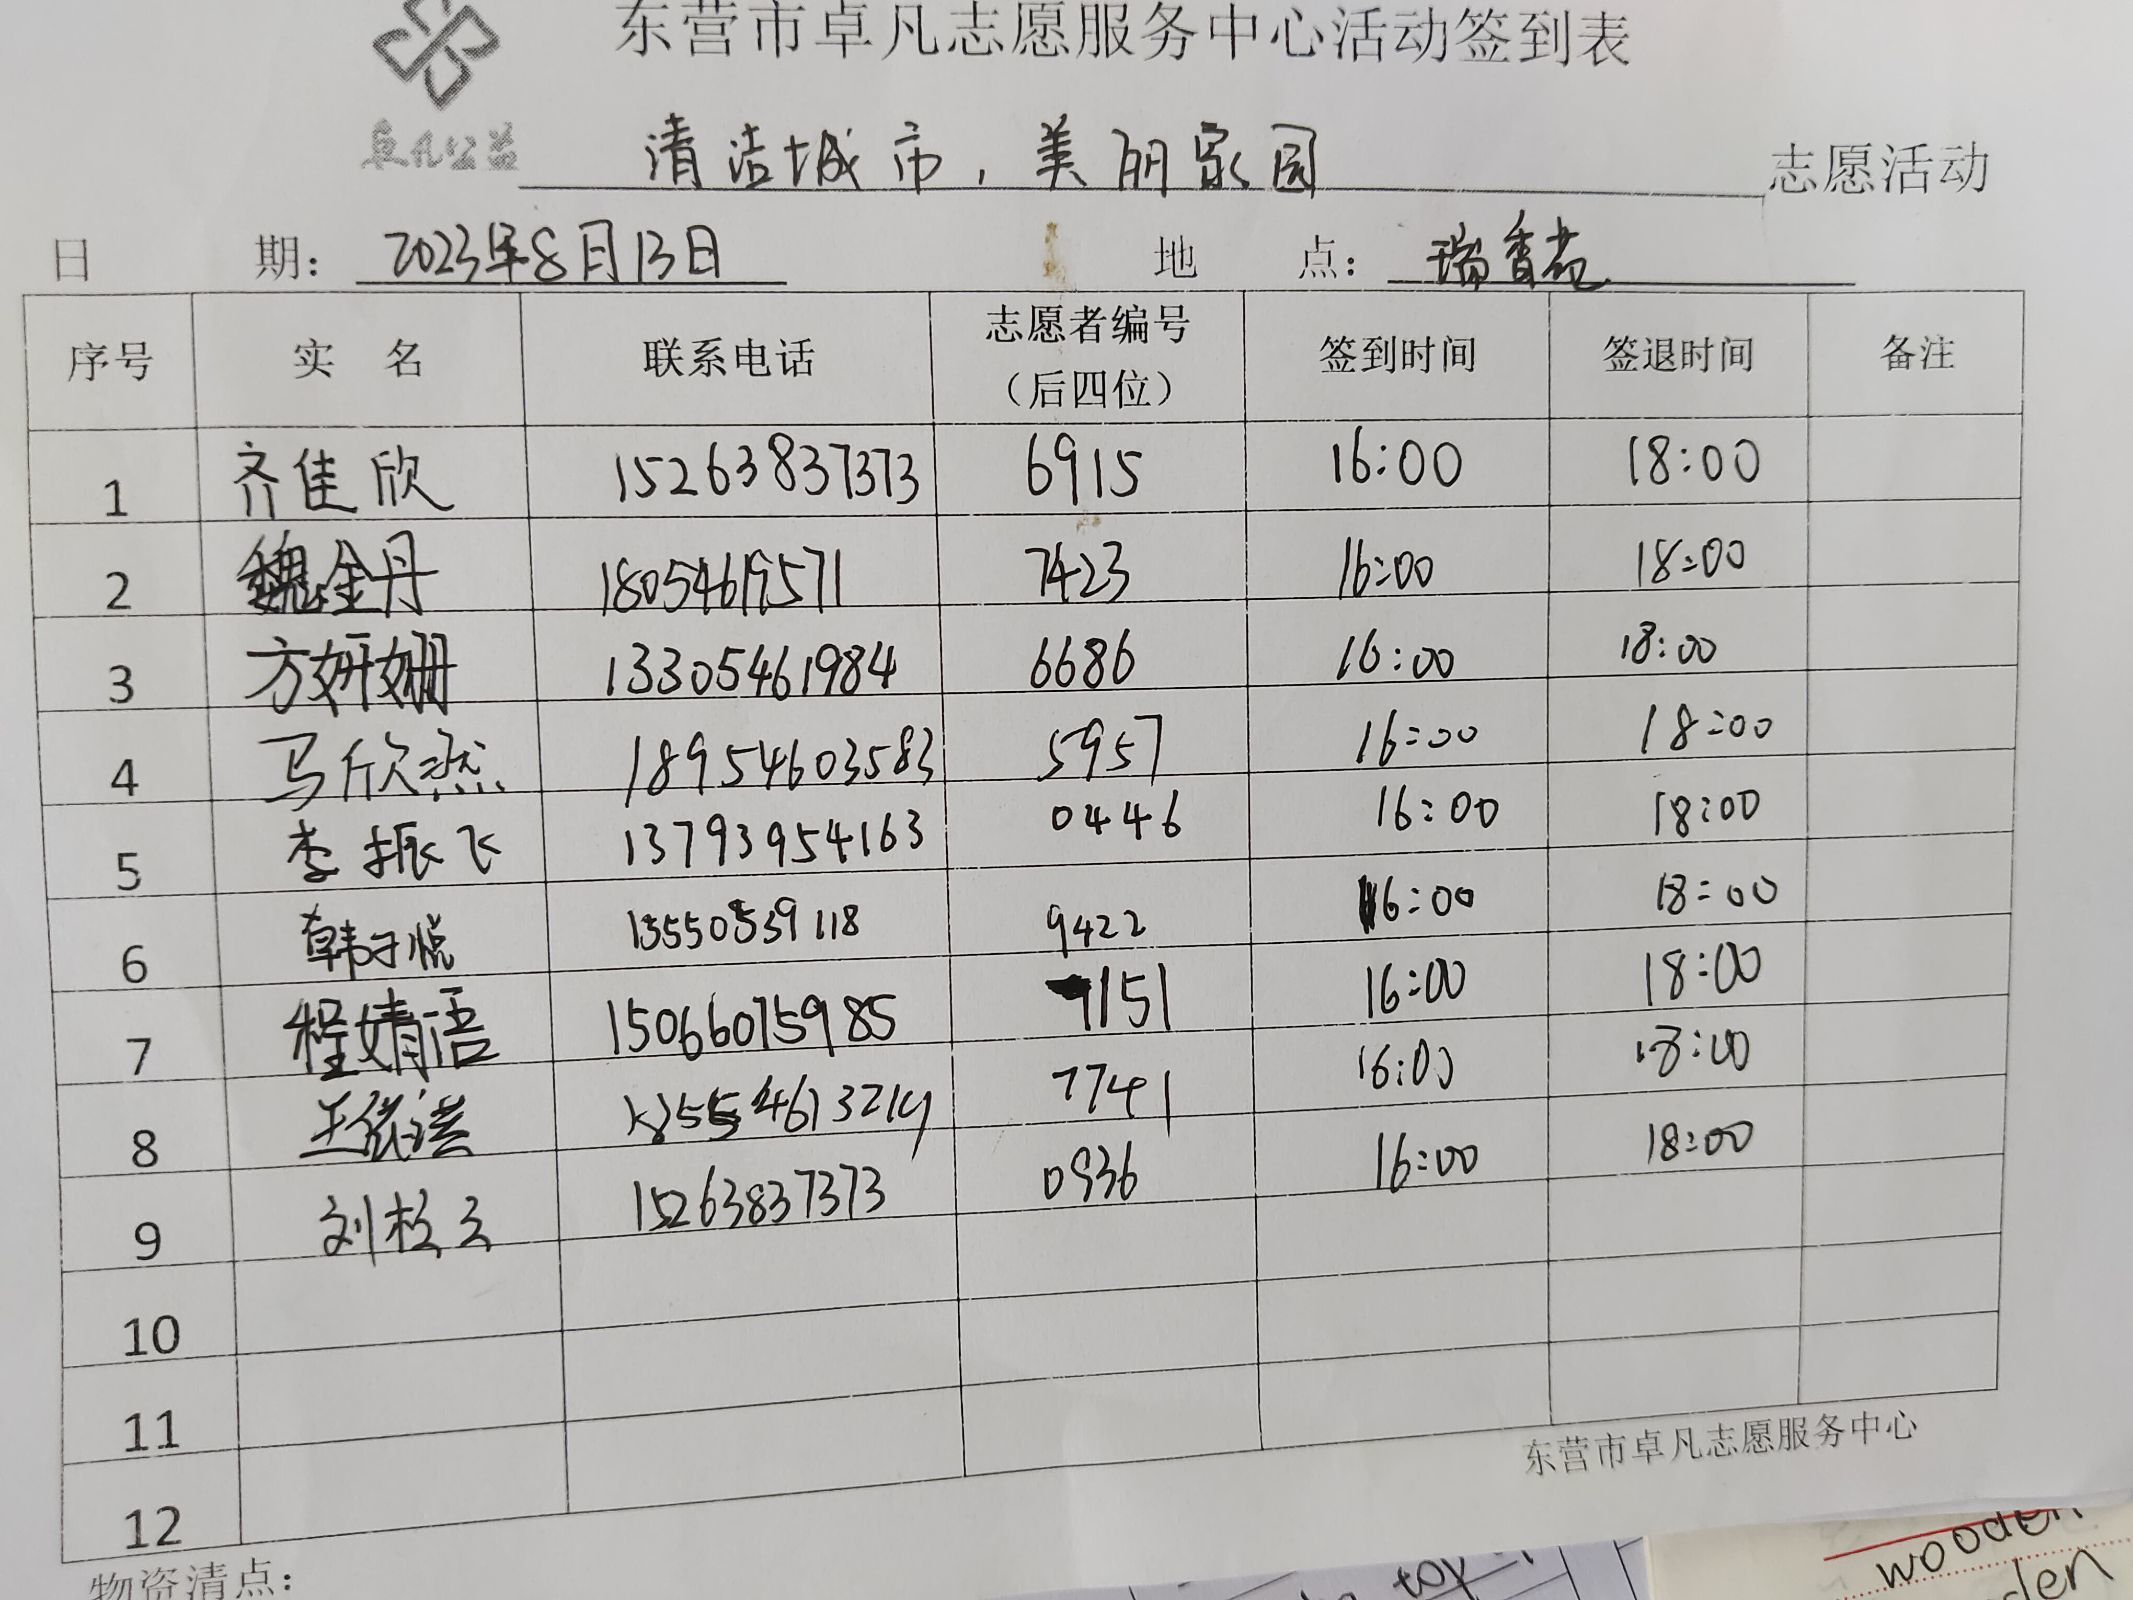 东营市卓凡志愿服务中心活动签到表
卓凡公益 清洁城市，美丽家园 志愿活动
日 期： 2023年8月13日 地 点： 瑞香苑
序号 实 名 联系电话 志愿者编号（后四位） 签到时间 签退时间 备注
1 齐佳欣 15263837373 6915 16:00 18:00
2 魏金丹 18054619571 7423 16:00 18:00
3 方妍姗 13305461984 6686 16:00 18:00
4 马欣然 18954603583 5957 16:00 18:00
5 李振飞 13793954163 0446 16:00 18:00
6 韩子悦 9422 16:00 18:00
7 程婧语 15066075985 9151 16:00 18:00
8 王依诺 7741 16:00 18:00
9 刘松云 15263837373 0936 16:00 18:00
10
11
12
东营市卓凡志愿服务中心
物资清点：
wooden